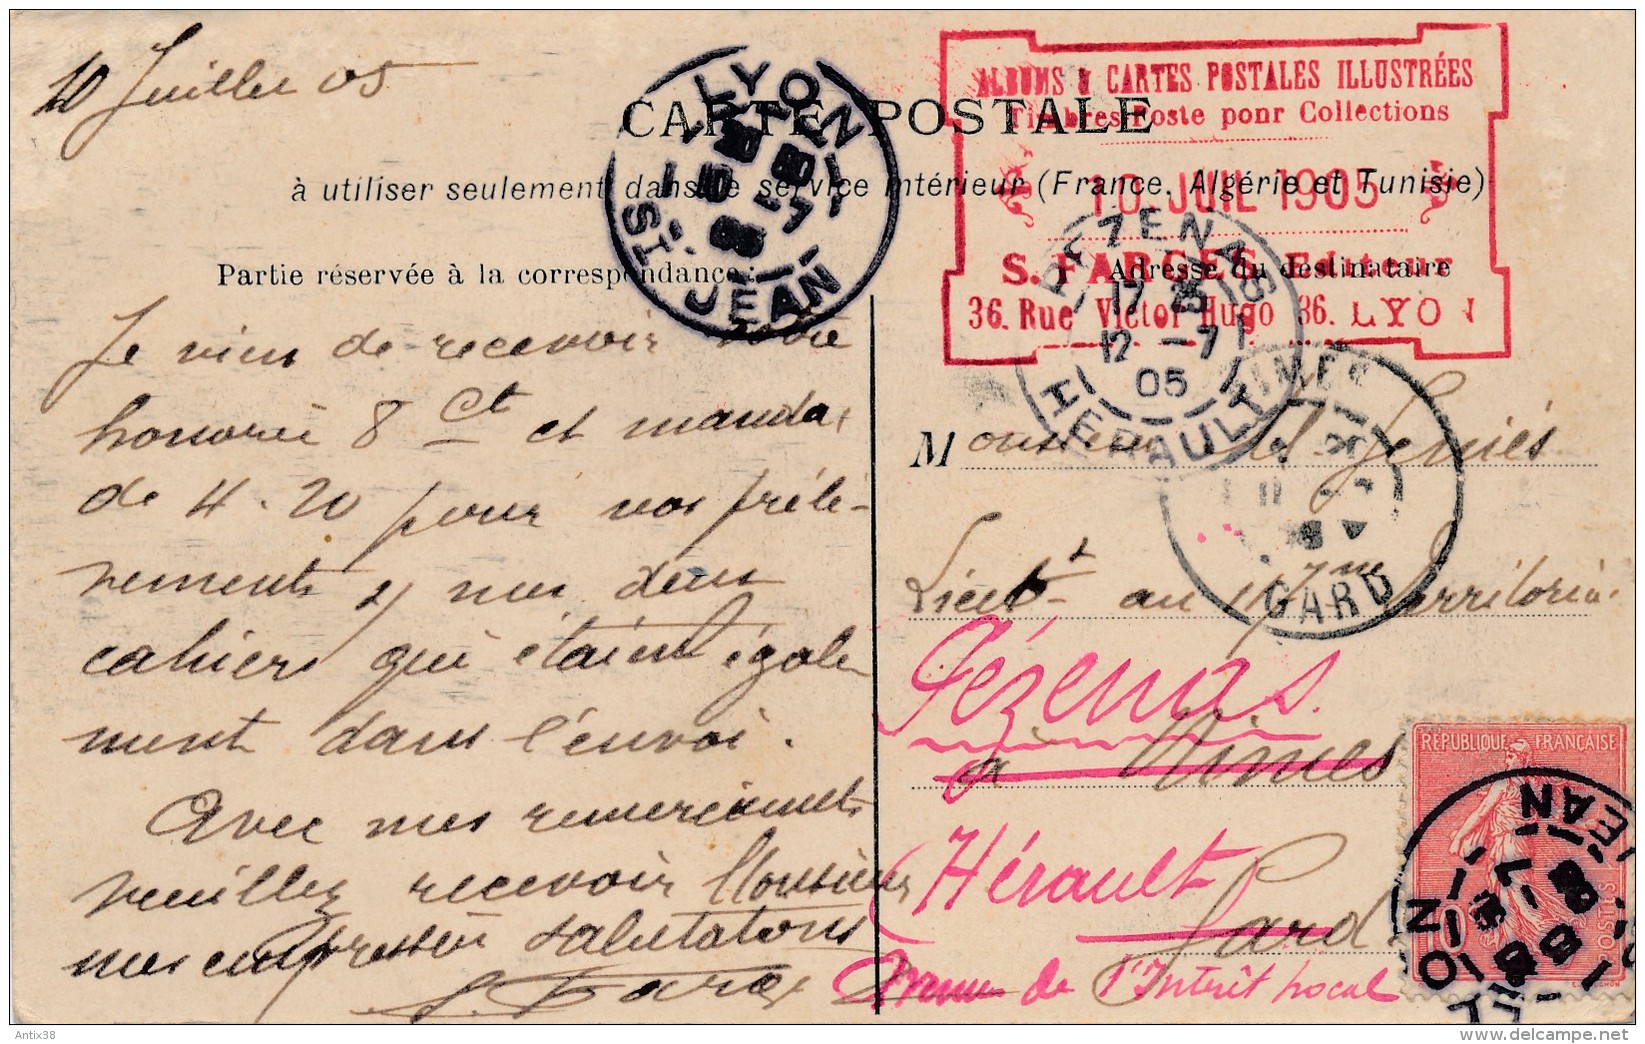 10 Juillet 05
CARTE POSTALE
à utiliser seulement dans le service intérieur (France, Algérie et Tunisie)
Partie réservée à la correspondance:
Adresse du destinataire
ALBUMS & CARTES POSTALES ILLUSTRÉES
Timbres Poste pour Collections
10 JUIL 1905
S. FARGES Editeur
36. Rue Victor Hugo 36. LYON
LYON
ST JEAN
PEZENAS
17 25
12 -7
05
HERAULT
NIMES
GARD
Je viens de recevoir votre
honorée 8 ct et mandat
de 4.20 pour vos prélè-
vements s/ mes deux
cahiers qui étaient égale
ment dans l'envoi.
Avec mes remerciements
veuillez recevoir Monsieur
mes empressées salutations
S. Farges
Monsieur Geniés
Lieut^t au 117me Territorial
Pézenas.
à Nimes
Hérault
Gard
de l'Intérêt local
RÉPUBLIQUE FRANÇAISE
10
POSTES
LYON
JEAN
Antix38